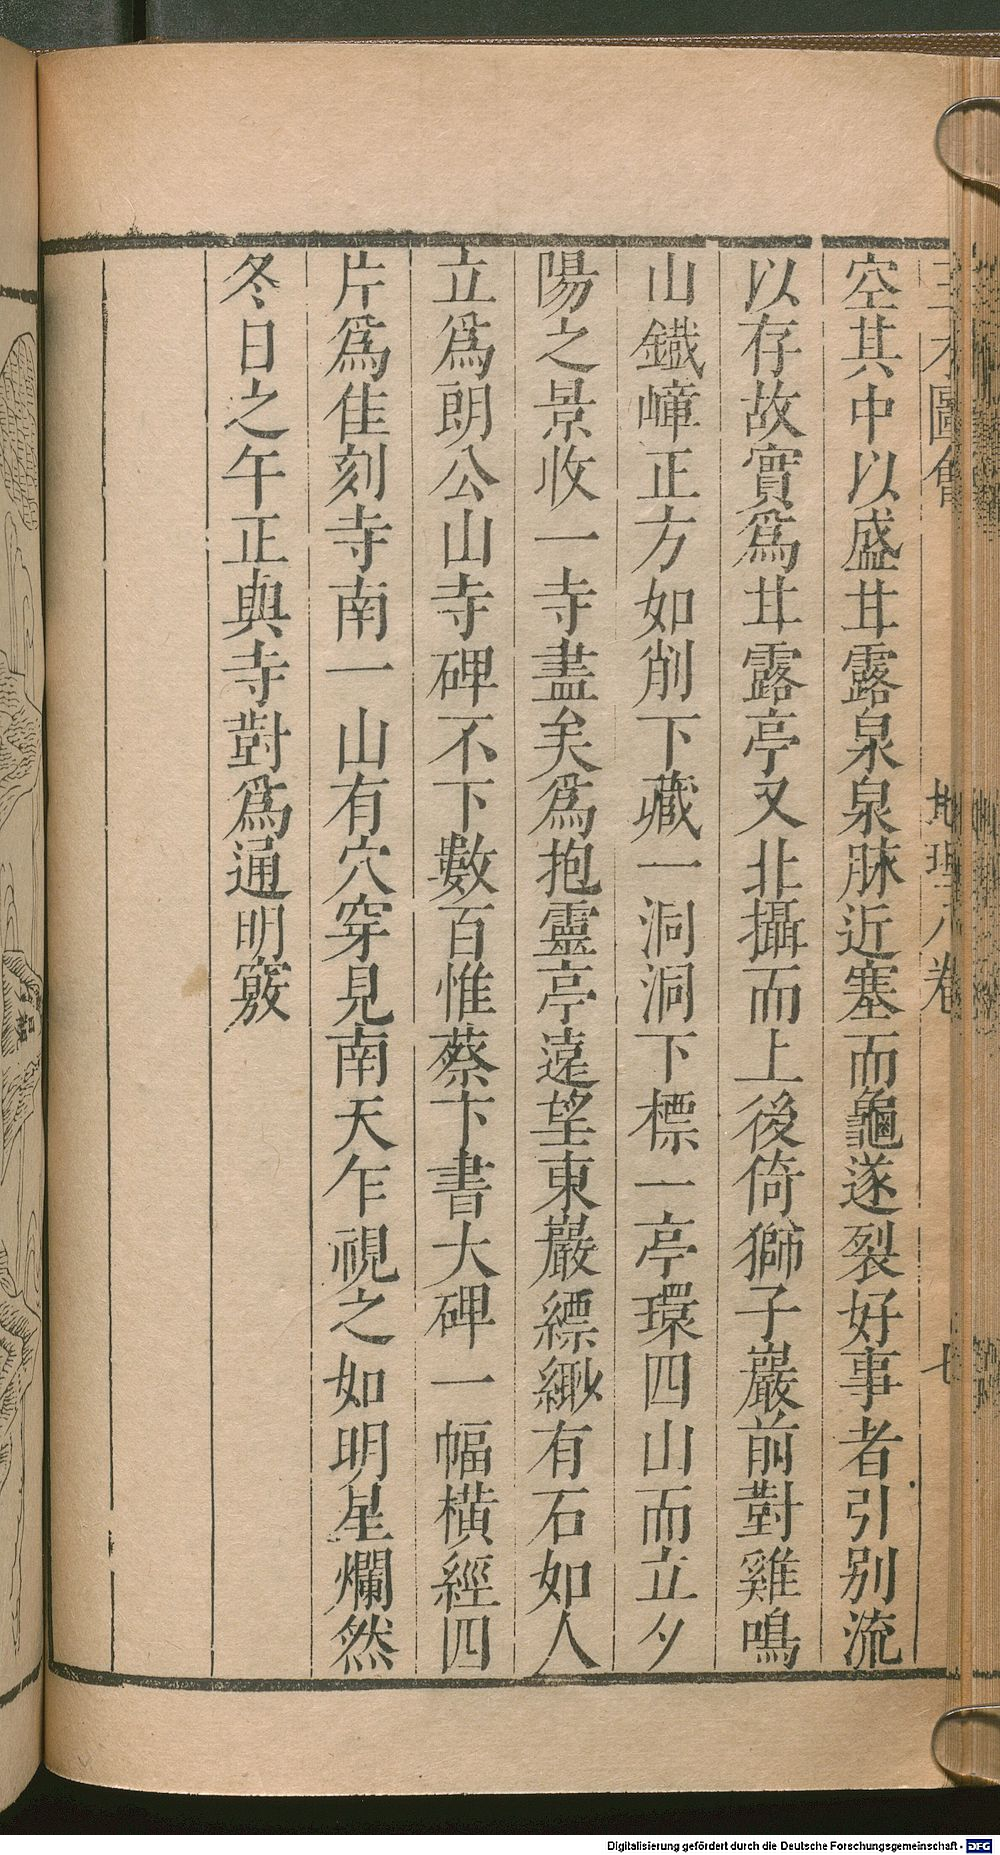 三才圖會 地理八卷 七
空其中以盛甘露泉泉脉近塞而龜遂裂好事者引别流
以存故實爲甘露亭又北攝而上後倚獅子巖前對雞鳴
山鐵嶂正方如削下藏一洞洞下標一亭環四山而立夕
陽之景收一寺盡矣爲抱靈亭遠望東巖縹緲有石如人
立爲朗公山寺碑不下數百惟蔡卞書大碑一幅橫經四
片爲隹刻寺南一山有穴穿見南天乍視之如明星爛然
冬日之午正與寺對爲通明竅
Digitalisierung gefördert durch die Deutsche Forschungsgemeinschaft - DFG